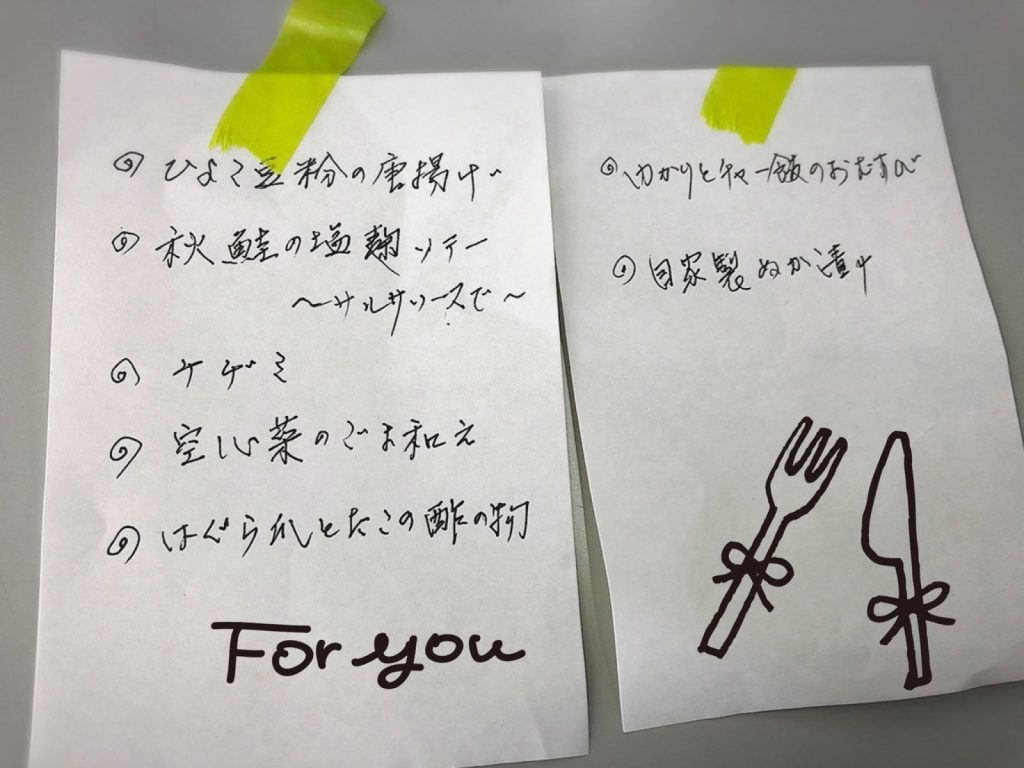 ひよこ豆粉の唐揚げ
秋鮭の塩麹ソテー
〜サルサソースで〜
ケゲミ
空心菜のごま和え
はぐら瓜とたこの酢の物
For you
ゆかりとチャー飯のおむすび
自家製ぬか漬け